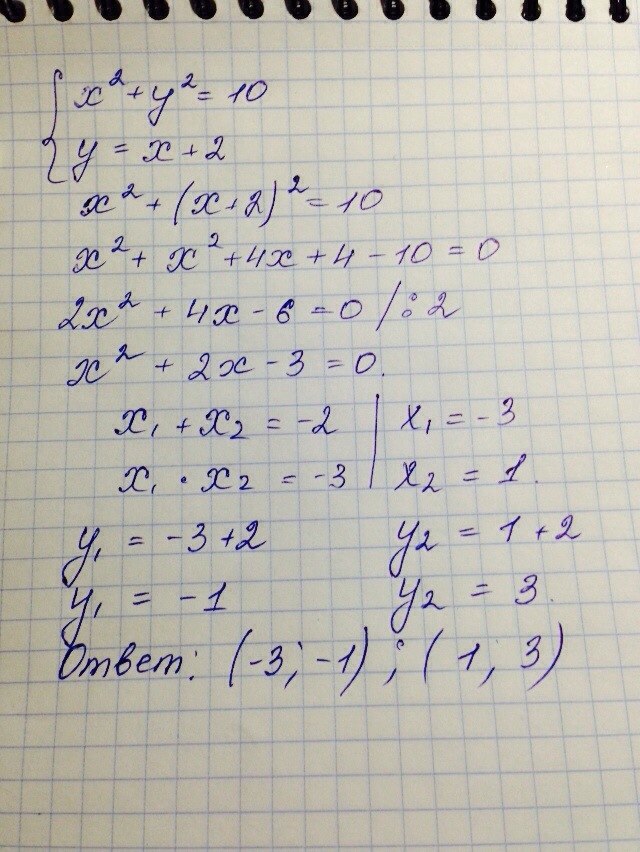 x² + y² = 10
y = x + 2
x² + (x + 2)² = 10
x² + x² + 4x + 4 - 10 = 0
2x² + 4x - 6 = 0 / : 2
x² + 2x - 3 = 0.
x₁ + x₂ = -2 | x₁ = -3
x₁ · x₂ = -3 | x₂ = 1.
y₁ = -3 + 2 y₂ = 1 + 2
y₁ = -1 y₂ = 3.
Ответ: (-3; -1) ; (1; 3)